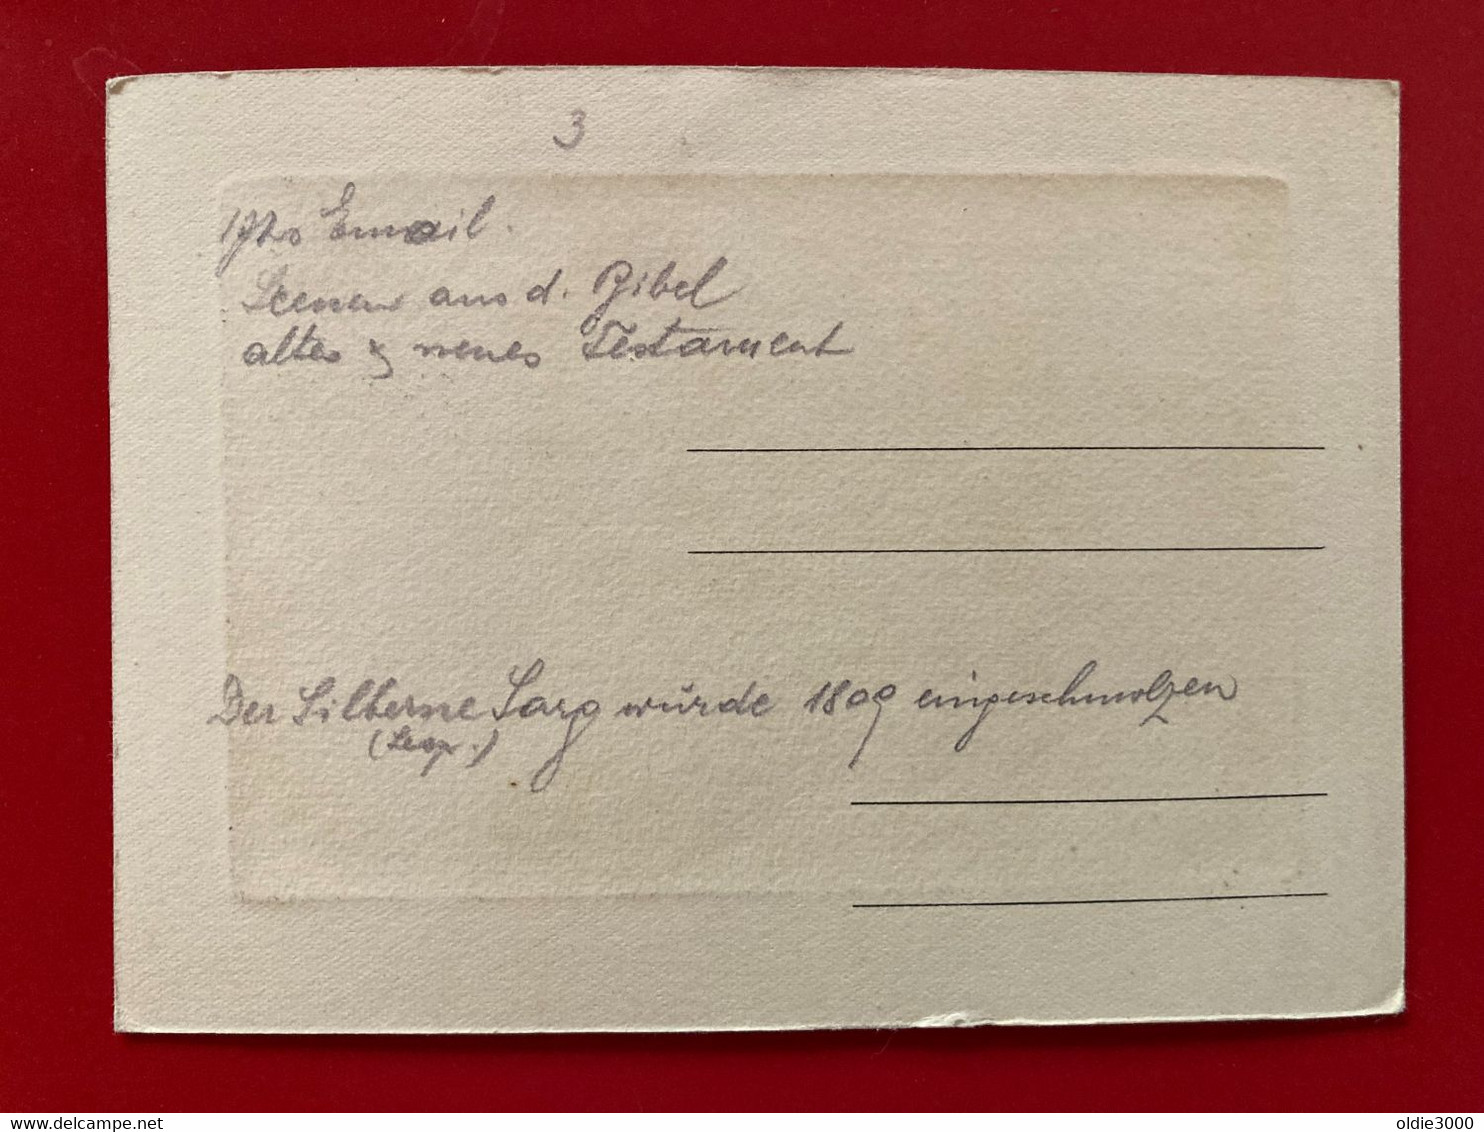 3
Email.
Scenen aus d. Bibel
altes & neues Testament
Der Silberne Sarg wurde 1809 eingeschmolzen
delcampe.net
oldie3000